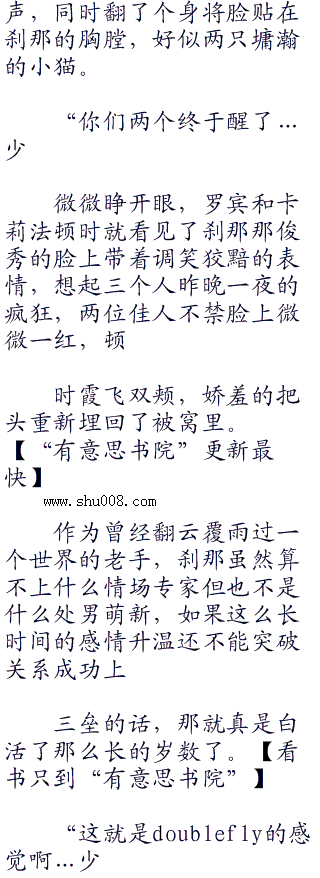 声，同时翻了个身将脸贴在
刹那的胸膛，好似两只墉瀚
的小猫。
“你们两个终于醒了…
少
微微睁开眼，罗宾和卡
莉法顿时就看见了刹那那俊
秀的脸上带着调笑狡黯的表
情，想起三个人昨晚一夜的
疯狂，两位佳人不禁脸上微
微一红，顿
时霞飞双颊，娇羞的把
头重新埋回了被窝里。
【“有意思书院”更新最
快】
www.shu008.com
作为曾经翻云覆雨过一
个世界的老手，刹那虽然算
不上什么情场专家但也不是
什么处男萌新，如果这么长
时间的感情升温还不能突破
关系成功上
三垒的话，那就真是白
活了那么长的岁数了。【看
书只到“有意思书院”】
“这就是doublefly的感
觉啊…少